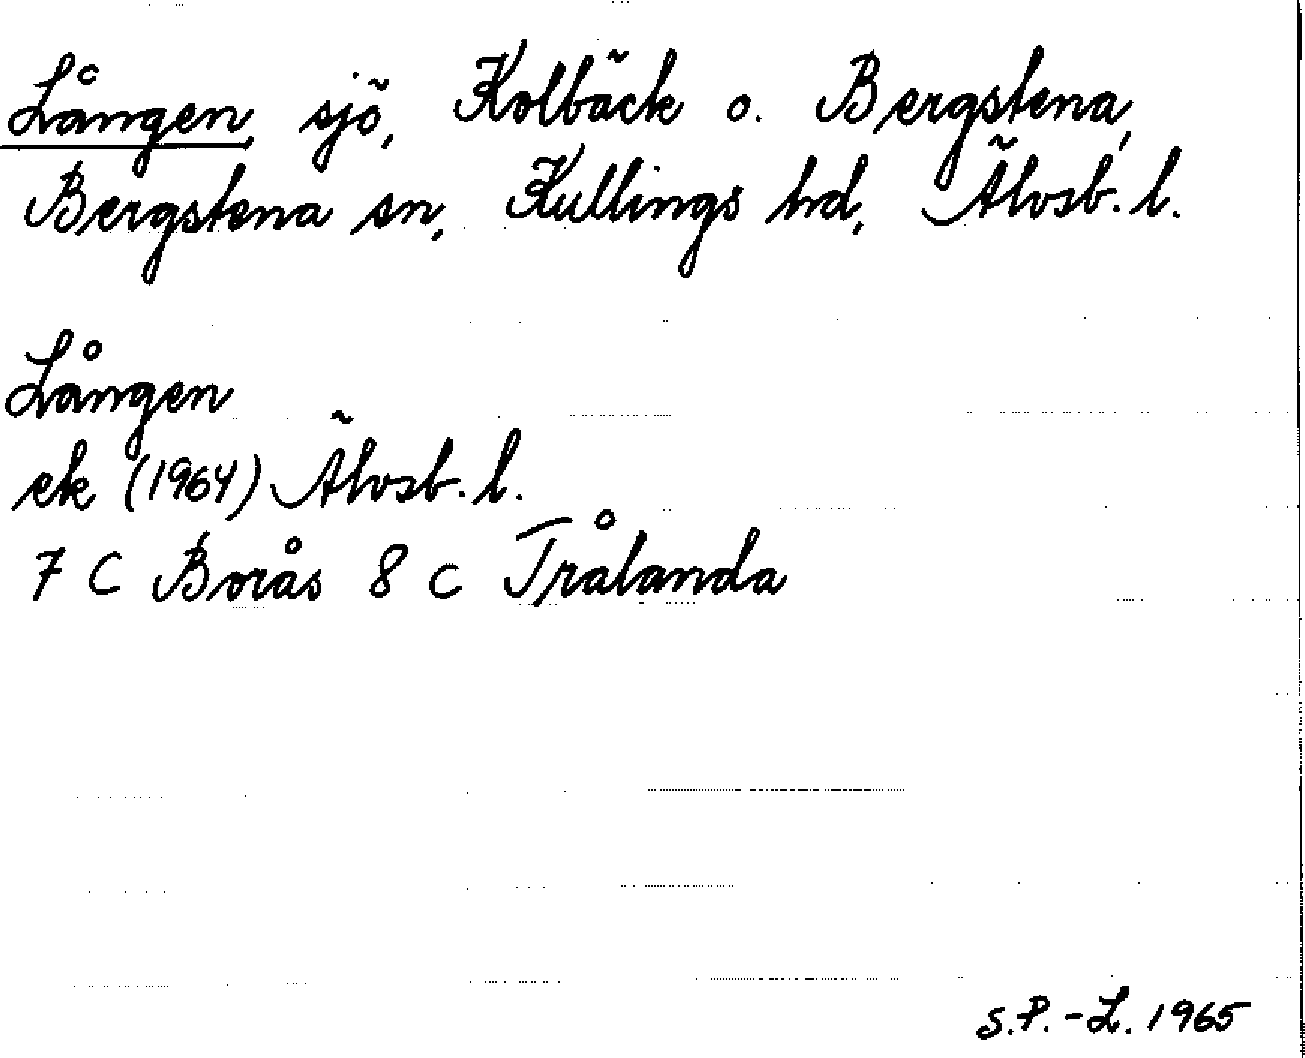 Lången, sjö, Kolbäck o. Bergstena,
Bergstena sn, Kullings hd, Älvsb. l.
Lången
ek (1964) Älvsb. l.
7 C Borås 8 c Trålanda
S.P.-L. 1965